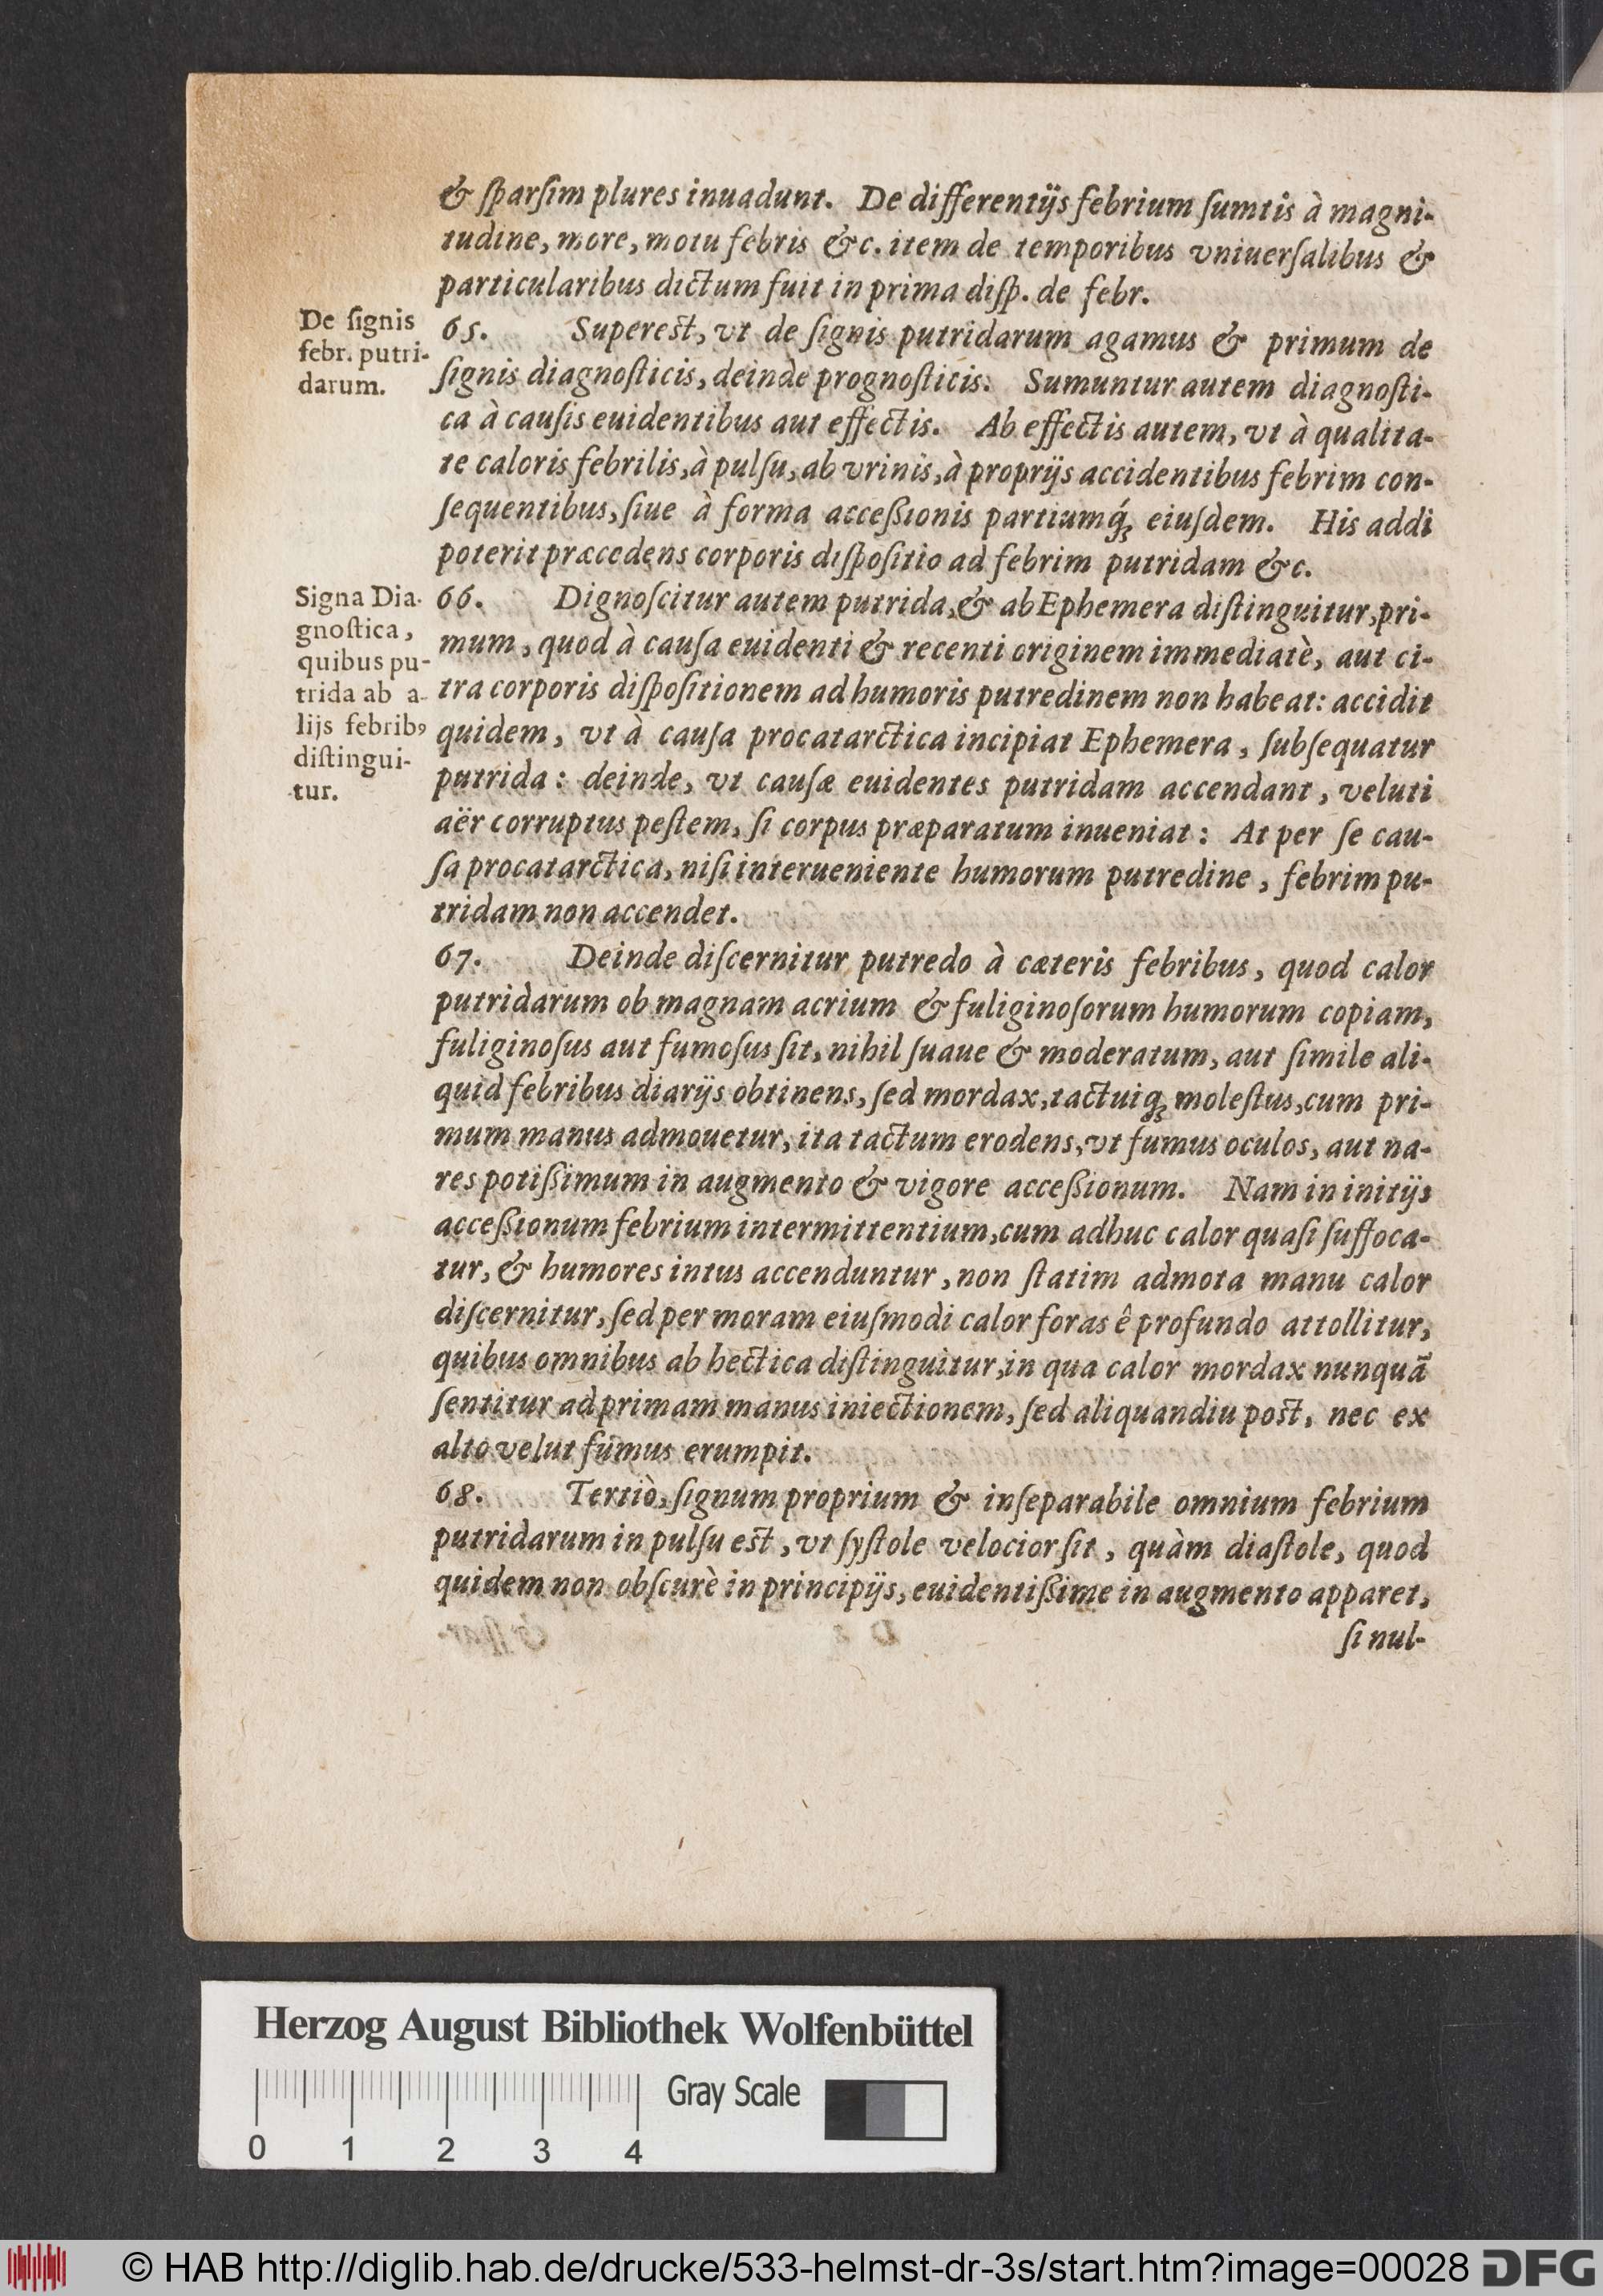 & ſparſim plures inuadunt. De differentijs febrium ſumtis à magni-
tudine, more, motu febris &c. item de temporibus vniuerſalibus &
particularibus dictum fuit in prima diſp. de febr.
De ſignis
febr. putri-
darum.
65. Supereſt, vt de ſignis putridarum agamus & primum de
ſignis diagnoſticis, deinde prognoſticis. Sumuntur autem diagnoſti-
ca à cauſis euidentibus aut effectis. Ab effectis autem, vt à qualita-
te caloris febrilis, à pulſu, ab vrinis, à proprijs accidentibus febrim con-
ſequentibus, ſiue à forma acceßionis partiumq́ꝫ eiuſdem. His addi
poterit præcedens corporis diſpoſitio ad febrim putridam &c.
Signa Dia-
gnoſtica,
quibus pu-
trida ab a-
lijs febribꝰ
diſtingui-
tur.
66. Dignoſcitur autem putrida, & ab Ephemera diſtinguitur, pri-
mum, quod à cauſa euidenti & recenti originem immediatè, aut ci-
tra corporis diſpoſitionem ad humoris putredinem non habeat: accidit
quidem, vt à cauſa procatarctica incipiat Ephemera, ſubſequatur
putrida: deinde, vt cauſæ euidentes putridam accendant, veluti
aër corruptus peſtem, ſi corpus præparatum inueniat: At per ſe cau-
ſa procatarctica, niſi interueniente humorum putredine, febrim pu-
tridam non accendet.
67. Deinde diſcernitur putredo à cæteris febribus, quod calor
putridarum ob magnam acrium & fuliginoſorum humorum copiam,
fuliginoſus aut fumoſus ſit, nihil ſuaue & moderatum, aut ſimile ali-
quid febribus diarijs obtinens, ſed mordax, tactuiqꝫ moleſtus, cum pri-
mum manus admouetur, ita tactum erodens, vt fumus oculos, aut na-
res potißimum in augmento & vigore acceßionum. Nam in initijs
acceßionum febrium intermittentium, cum adhuc calor quaſi ſuffoca-
tur, & humores intus accenduntur, non ſtatim admota manu calor
diſcernitur, ſed per moram eiuſmodi calor foras ê profundo attollitur,
quibus omnibus ab hectica diſtinguitur, in qua calor mordax nunquã
ſentitur ad primam manus iniectionem, ſed aliquandiu poſt, nec ex
alto velut fumus erumpit.
68. Tertiò, ſignum proprium & inſeparabile omnium febrium
putridarum in pulſu eſt, vt ſyſtole velocior ſit, quàm diaſtole, quod
quidem non obſcurè in principijs, euidentißime in augmento apparet,
ſi nul-
Herzog August Bibliothek Wolfenbüttel
Gray Scale
0 1 2 3 4
© HAB http://diglib.hab.de/drucke/533-helmst-dr-3s/start.htm?image=00028 DFG